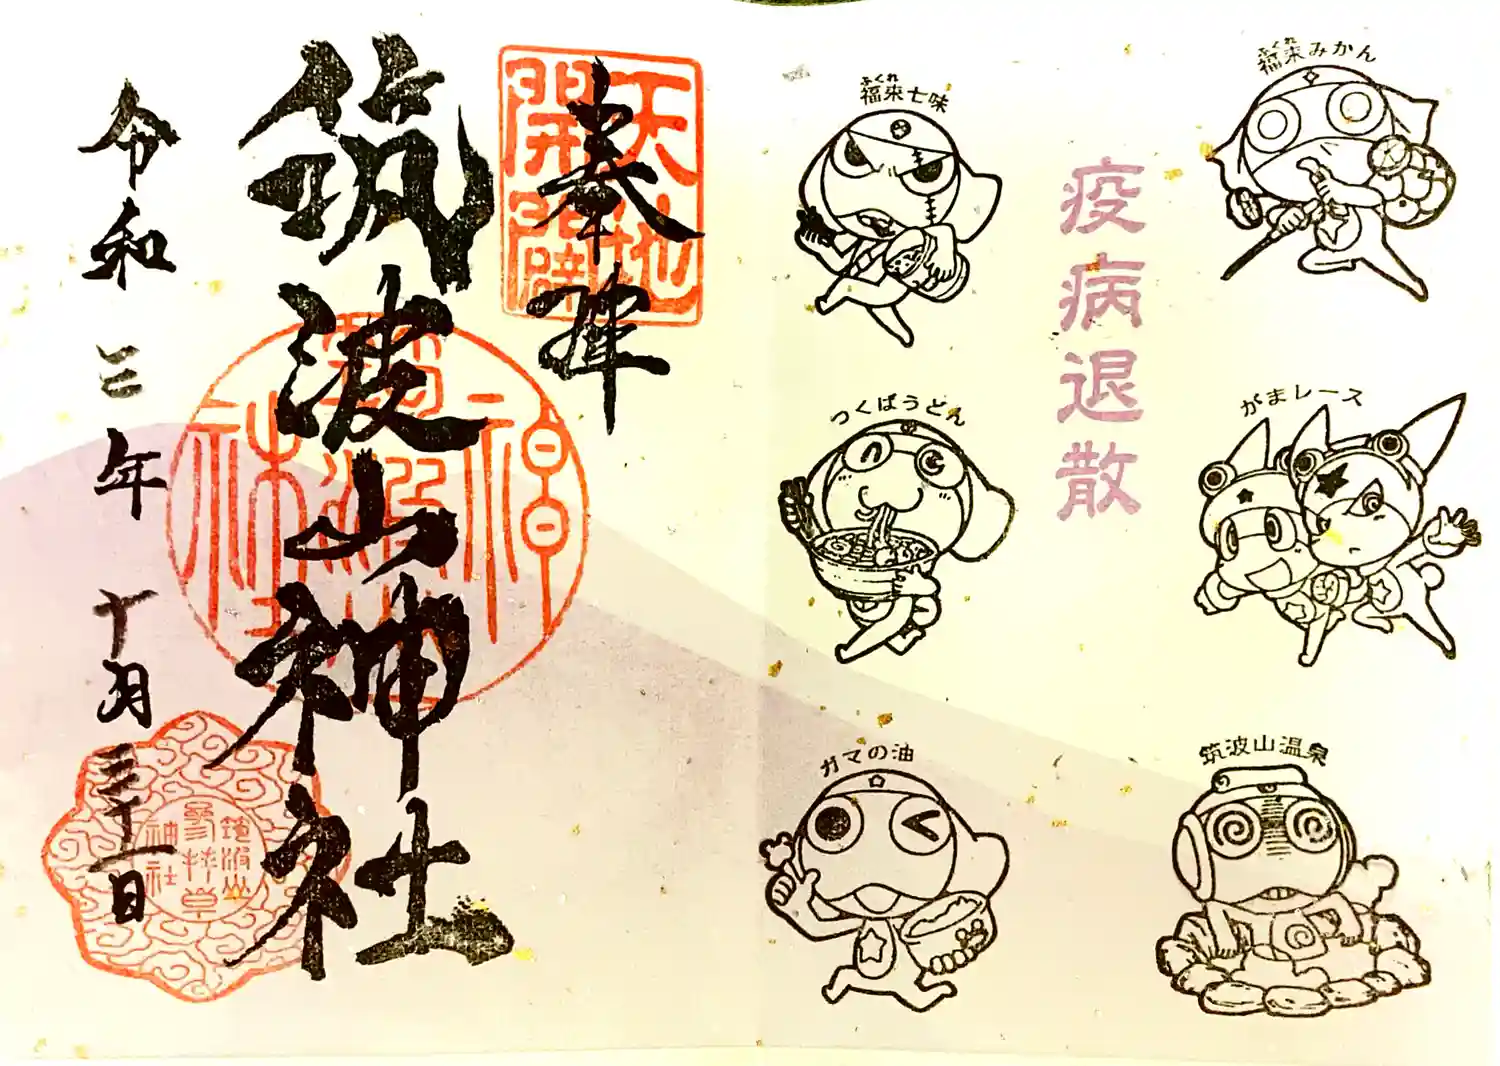 奉拝
天地
開闢
筑波山神社
令和三年十月三十一日
筑波山
参拝章
神社
疫病退散
ふくれ
福来みかん
ふくれ
福来七味
がまレース
つくばうどん
筑波山温泉
ガマの油